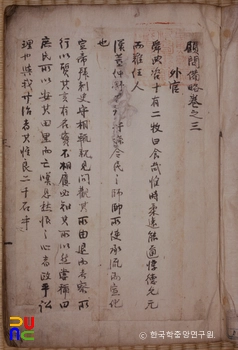 顧問備略卷之三
外官
舜典咨十有二牧曰食哉惟時柔遠能邇惇德允元
而難任人
漢董仲舒曰守縣令民之師帥所使承流而宣化
也
宣帝拜刺史守相輒親見問觀其所由退而考察所
行以質其言有名實不相應必知其所以然常稱曰
庶民所以安其田里而亡嘆息愁恨之心者政平訟
理也與我共治者其惟良二千石乎
ⓒ 한국학중앙연구원